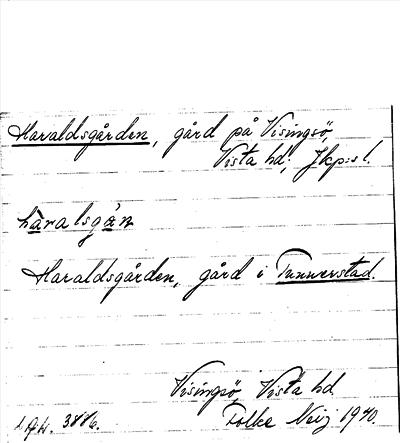 Haraldsgården, gård på Visingsö,
Vista hd; Jkp:s l.
haralsgån
Haraldsgården, gård i Tunnerstad.
Visingsö, Vista hd
3886. Folke Neij 1940.